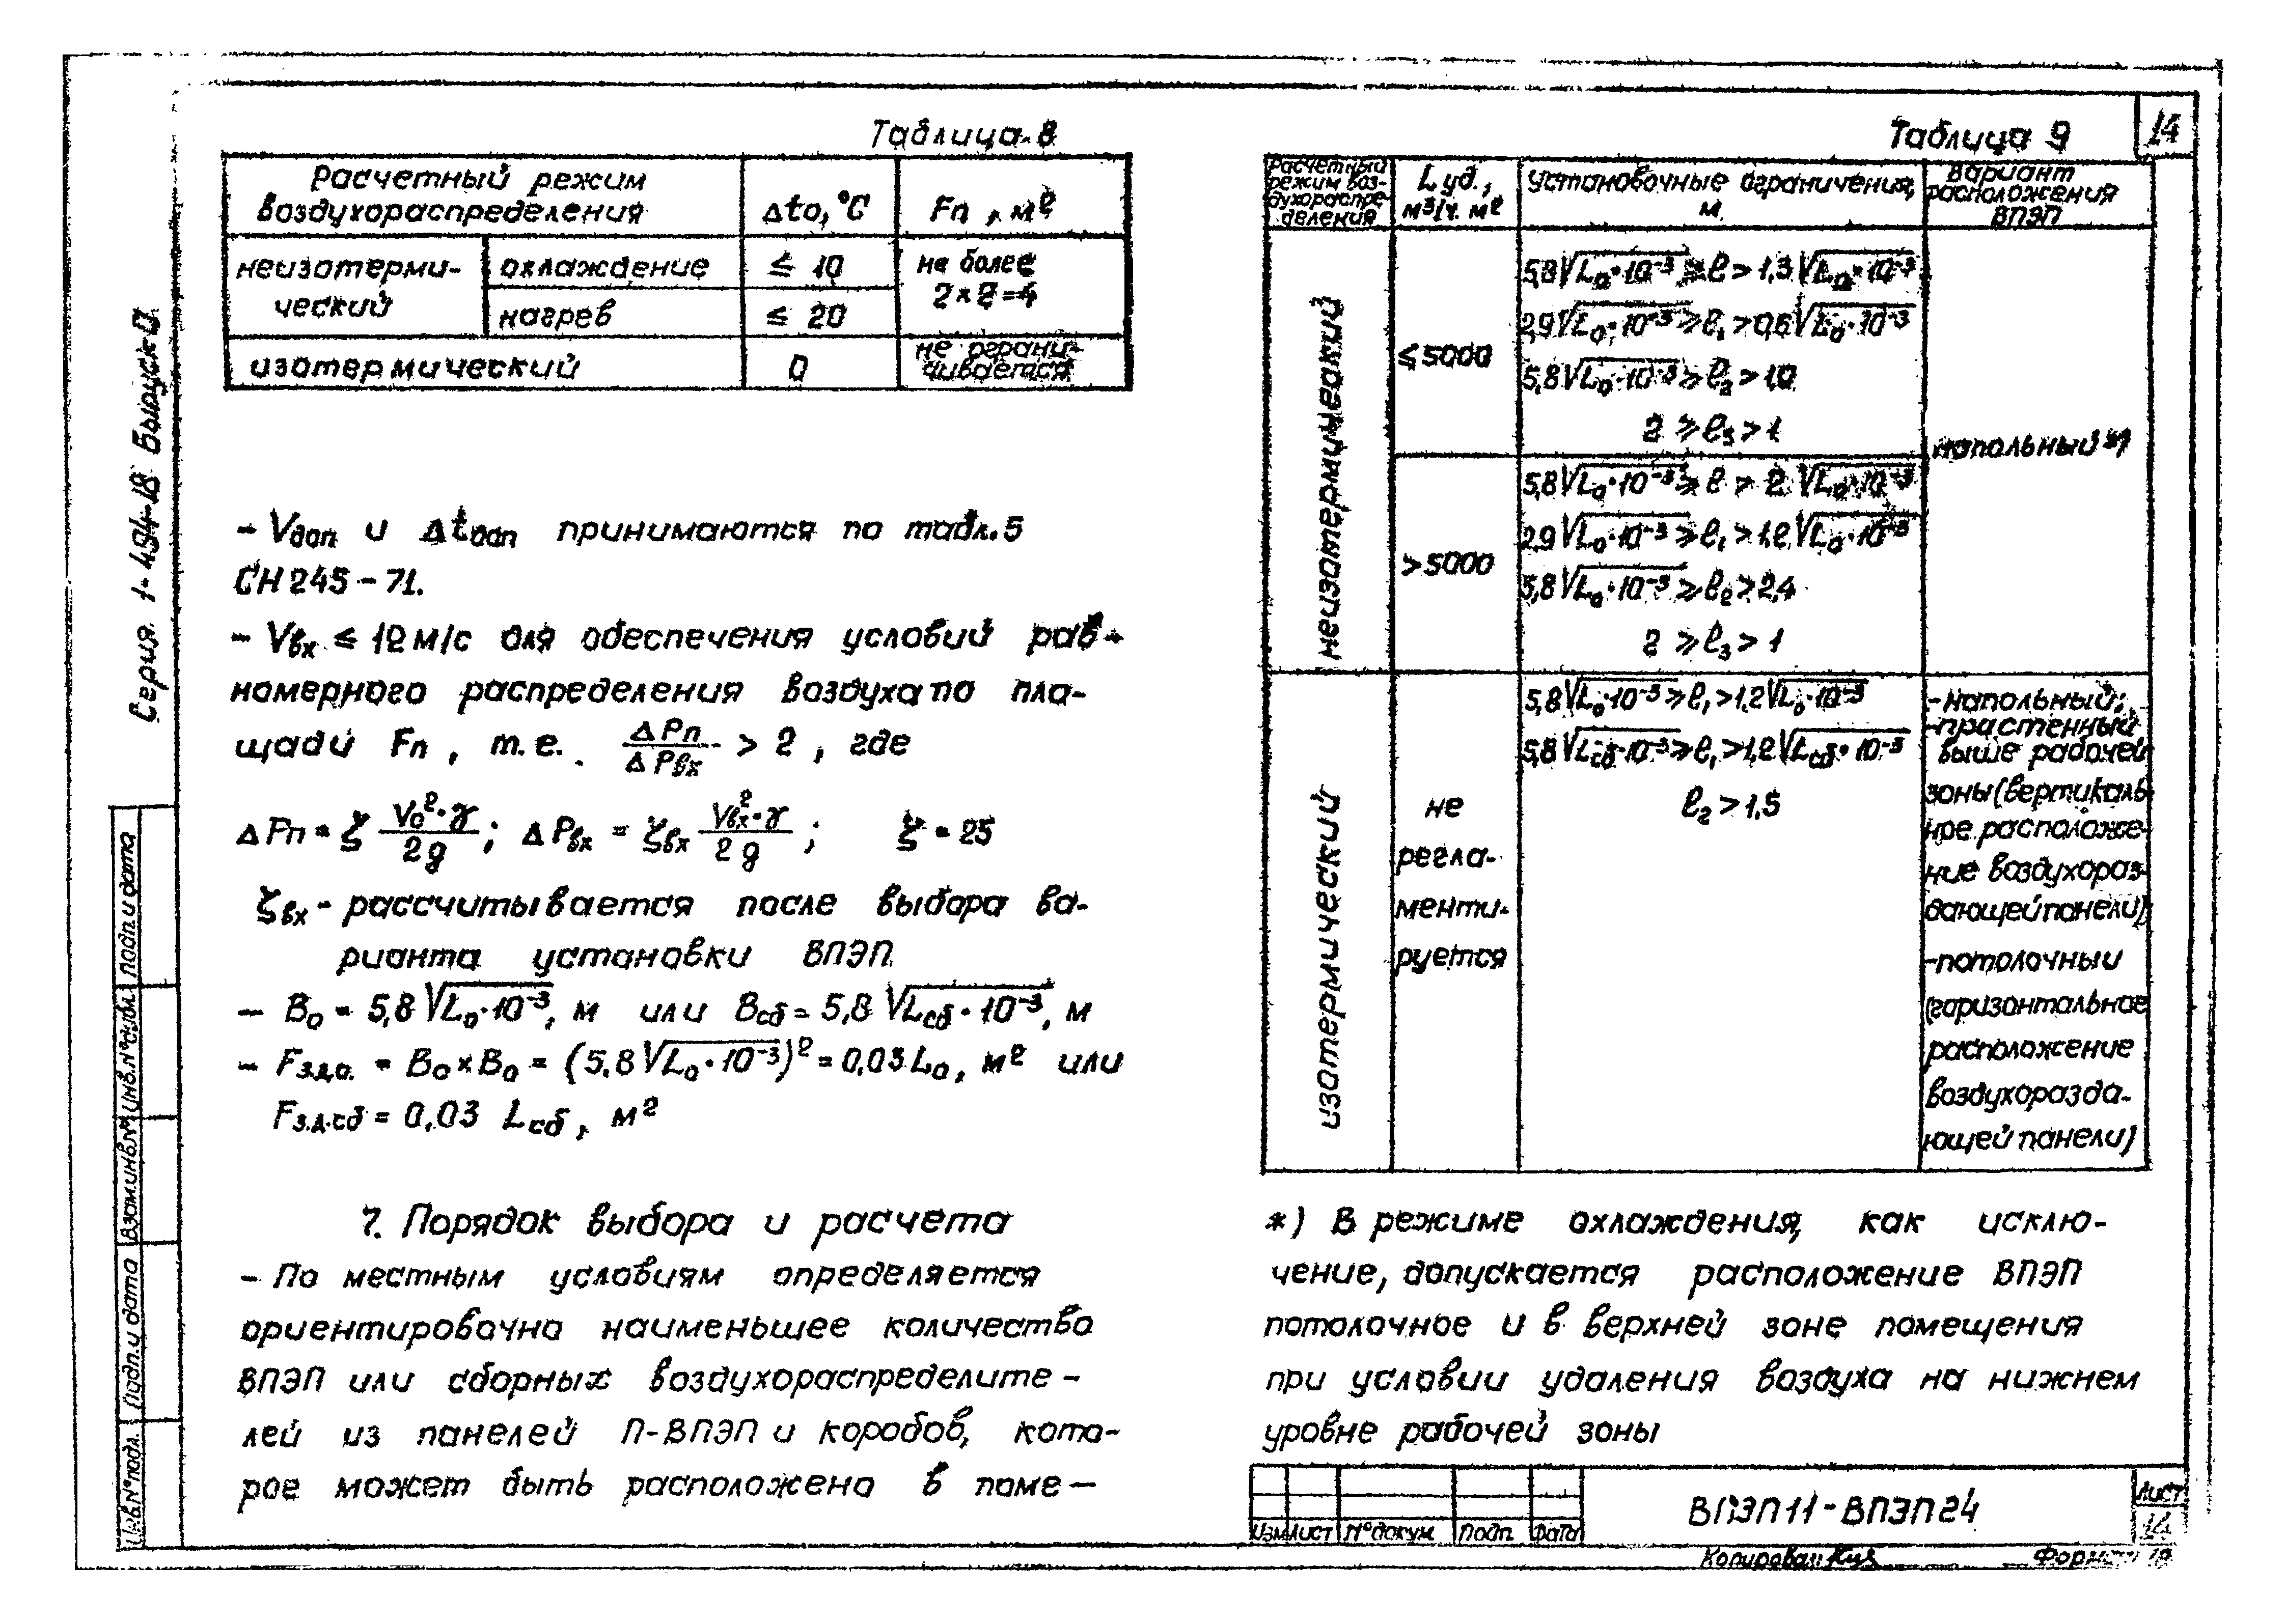 14
Таблица 8
Расчетный режим воздухораспределения | Δtо, °С | Fп, м²
неизотермический | охлаждение | ≤ 10 | не более 2×2=4
нагрев | ≤ 20
изотермический | 0 | не ограничивается
– Vдоп и Δtдоп принимаются по табл. 5
СН 245 – 71.
– Vвх ≤ 12 м/с для обеспечения условий рав-
номерного распределения воздуха по пла-
щади Fп, т.е. ΔPп/ΔPвх > 2, где
ΔPп = ζ Vо²·γ/2g; ΔPвх = ζвх Vвх²·γ/2g; ξ = 25
ζвх – рассчитывается после выбора ва-
рианта установки ВПЭП
– Bо = 5,8 √Lо·10⁻³, м или Bсб = 5,8 √Lсб·10⁻³, м
– Fз.д.о. = Bо×Bо = (5,8√Lо·10⁻³)² = 0,03 Lо, м² или
Fз.д.сб = 0,03 Lсб, м²
7. Порядок выбора и расчета
– По местным условиям определяется
ориентировочно наименьшее количество
ВПЭП или сборных воздухораспределите-
лей из панелей П-ВПЭП и коробов, кото-
рое может быть расположено в поме-
Таблица 9
Расчетный
режим воз-
духораспре-
деления
Lуд.,
м³/ч. м²
установочные ограничения,
м
Вариант
расположения
ВПЭП
неизотермический
≤ 5000
5,8√Lо·10⁻³ ≥ ℓ > 1,3√Lо·10⁻³
2,9√Lо·10⁻³ ≥ ℓ₁ > 0,6√Lо·10⁻³
5,8√Lо·10⁻³ ≥ ℓ₂ > 1,0
2 ≥ ℓ₃ > 1
напольный *)
> 5000
5,8√Lо·10⁻³ ≥ ℓ > 2√Lо·10⁻³
2,9√Lо·10⁻³ ≥ ℓ₁ > 1,2√Lо·10⁻³
5,8√Lо·10⁻³ ≥ ℓ₂ > 2,4
2 ≥ ℓ₃ > 1
изотермический
не
регла-
менти-
руется
5,8√Lо·10⁻³ ≥ ℓ₁ > 1,2√Lо·10⁻³
5,8√Lсб·10⁻³ ≥ ℓ₁ > 1,2√Lсб·10⁻³
ℓ₂ > 1,5
-напольный;
-прастенный
выше рабочей
зоны (вертикаль-
ное расположе-
ние воздухораз-
дающей панели);
-потолочный
(горизонтальное
расположение
воздухоразда-
ющей панели)
*) В режиме охлаждения, как исклю-
чение, допускается расположение ВПЭП
потолочное и в верхней зоне помещения
при условии удаления воздуха на нижнем
уровне рабочей зоны
Изм Лист № докум Подп. Дата
ВПЭП11 - ВПЭП24
Лист
14
Копировал
Формат
Серия 1-494-18 Выпуск 0
Инв № подл. Подп. и дата Взам. инв. № Инв. № дубл. Подп. и дата